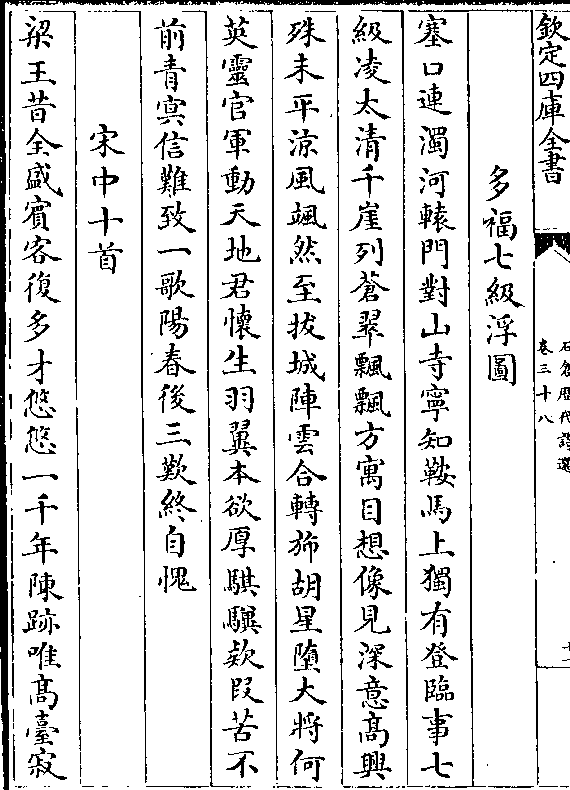 欽定四庫全書
石倉歷代詩選
卷三十八
十一
多福七級浮圖
塞口連濁河轅門對山寺寧知鞍馬上獨有登臨事七
級凌太清千崖列蒼翠飄飄方寓目想像見深意高興
殊未平涼風颯然至拔城陣雲合轉斾胡星墮大將何
英靈官軍動天地君懷生羽翼本欲厚騏驥欵段苦不
前青㝠信難致一歌陽春後三歎終自愧
宋中十首
梁王昔全盛賓客復多才悠悠一千年陳跡唯高臺寂